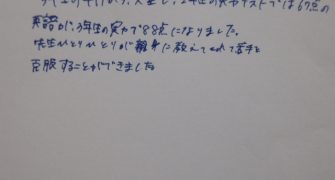 、2年生の実力テストでは67点の
英語が、3年生の実力で88点になりました。
先生ひとりひとりが親身に教えてくれて苦手を
克服することができました